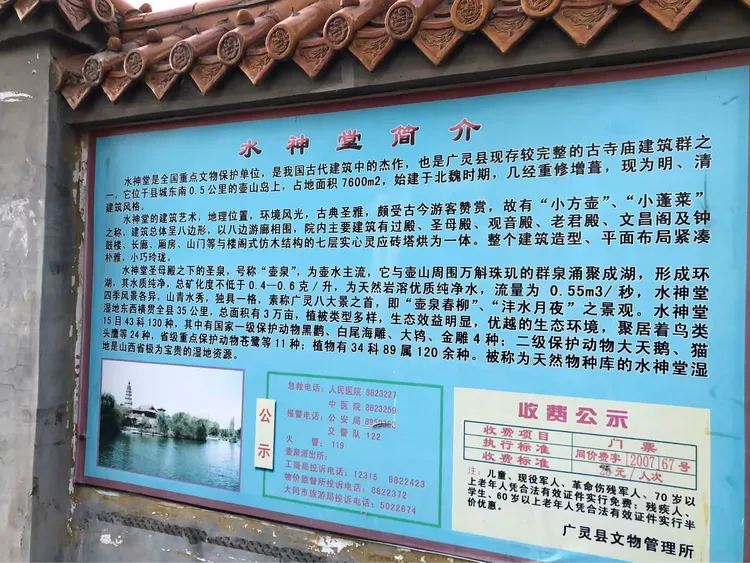 水神堂简介
水神堂是全国重点文物保护单位，是我国古代建筑中的杰作，也是广灵县现存较完整的古寺庙建筑群之
一，它位于县城东南0.5公里的壶山岛上，占地面积7600m2，始建于北魏时期，几经重修增葺，现为明、清
建筑风格。
水神堂的建筑艺术，地理位置，环境风光，古典圣雅，颇受古今游客赞赏，故有“小方壶”、“小蓬莱”
之称，建筑总体呈八边形，以八边游廊相围，院内主要建筑有过殿、圣母殿、观音殿、老君殿、文昌阁及钟
鼓楼、长廊、厢房、山门等与楼阁式仿木结构的七层实心灵应砖塔烘为一体。整个建筑造型、平面布局紧凑
朴雅，小巧玲珑。
水神堂圣母殿之下的圣泉，号称“壶泉”，为壶水主流，它与壶山周围万斛珠玑的群泉涌聚成湖，形成环
湖，其水质纯净，总矿化度不低于0.4—0.6克/升，为天然岩溶优质纯净水，流量为0.55m3/秒，水神堂
四季风景各异，山青水秀，独具一格，素称广灵八大景之首，即“壶泉春柳”、“沣水月夜”之景观。水神堂
湿地东西横贯全县35公里，总面积有3万亩，植被类型多样，生态效益明显，优越的生态环境，聚居着鸟类
15目43科130种，其中有国家一级保护动物黑鹳、白尾海雕、大鸨、金雕4种；二级保护动物大天鹅、猫
头鹰等24种，省级重点保护动物苍鹭等11种；植物有34科89属120余种。被称为天然物种库的水神堂湿
地是山西省极为宝贵的湿地资源。
公示
急救电话：人民医院 8823227
中医院 8823259
报警电话：公安局
交警队 122
火警：119
壶泉派出所：
工商局投诉电话：12315 8822423
物价监督所投诉电话：8822372
大同市旅游局投诉电话：5022674
收费公示
收费项目 门票
执行标准 同价费字[2007]67号
收费标准 元/人次
注：儿童、现役军人、革命伤残军人、70岁以
上老年人凭合法有效证件实行免费；残疾人、
学生、60岁以上老年人凭合法有效证件实行半
价优惠。
广灵县文物管理所